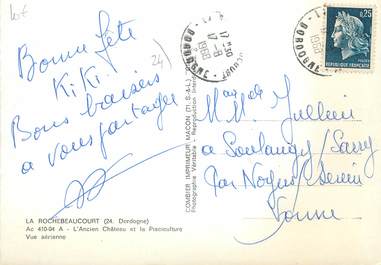 10€
24)
Bonne fête
KiKi.
Bons baisers
a vous partager
LA ROCHEBEAUCOURT (24. Dordogne)
Ac 410-04 A - L'Ancien Château et la Pisciculture
Vue aérienne
COMBIER IMPRIMEUR MACON (71. S.-&-L.)
Photographie Véritable - Reproduction Interdite
17 H30
17-8
1968
DORDOGNE
0,25
REPUBLIQUE FRANÇAISE
M. M. Jullien
a Soulangy/Sarry
par Noyers/Serein
Yonne